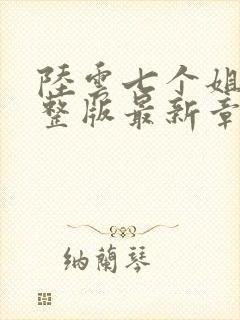 陸雲七个姐
整版最新章
纳蘭琴